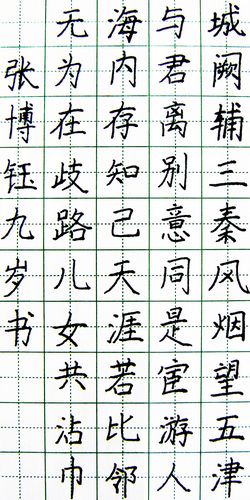 城阙辅三秦风烟望五津
与君离别意同是宦游人
海内存知己天涯若比邻
无为在歧路儿女共沾巾
张博钰九岁书